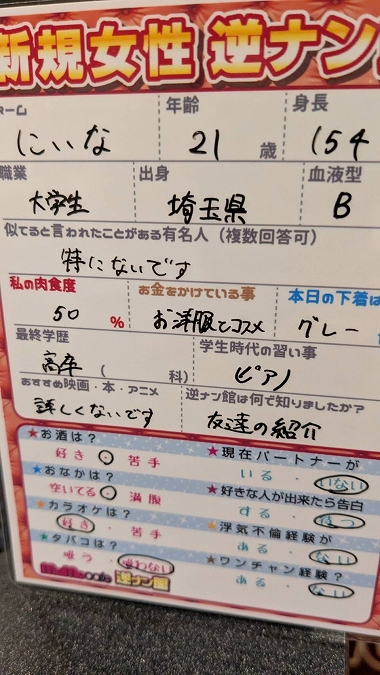 新規女性 逆ナン
ーム 年齢 身長
にいな 21 歳 154
職業 出身 血液型
大学生 埼玉県 B
似てると言われたことがある有名人（複数回答可）
特にないです
私の肉食度 お金をかけている事 本日の下着は
50 % お洋服とコスメ グレー
最終学歴 学生時代の習い事
高卒 ( 科) ピアノ
おすすめ映画・本・アニメ 逆ナン館は何で知りましたか？
詳しくないです 友達の紹介
★お酒は？ ★現在パートナーが
好き ・ 苦手 いる ・ いない
★おなかは？ ★好きな人が出来たら告白
空いてる ・ 満腹 する ・ 待つ
★カラオケは？ ★浮気不倫経験が
好き ・ 苦手 ある ・ ない
★タバコは？ ★ワンチャン経験？
吸う ・ 吸わない ある ・ ない
cafe 逆ナン館